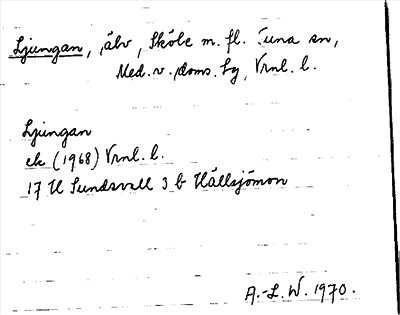 Ljungan, älv, Sköle m. fl. Tuna sn,
Med. v. doms. tg, Vrnl. l.
Ljungan
ek (1968) Vrnl. l.
17 H Sundsvall 3 b Hällsjömon
A.-L. W. 1970.